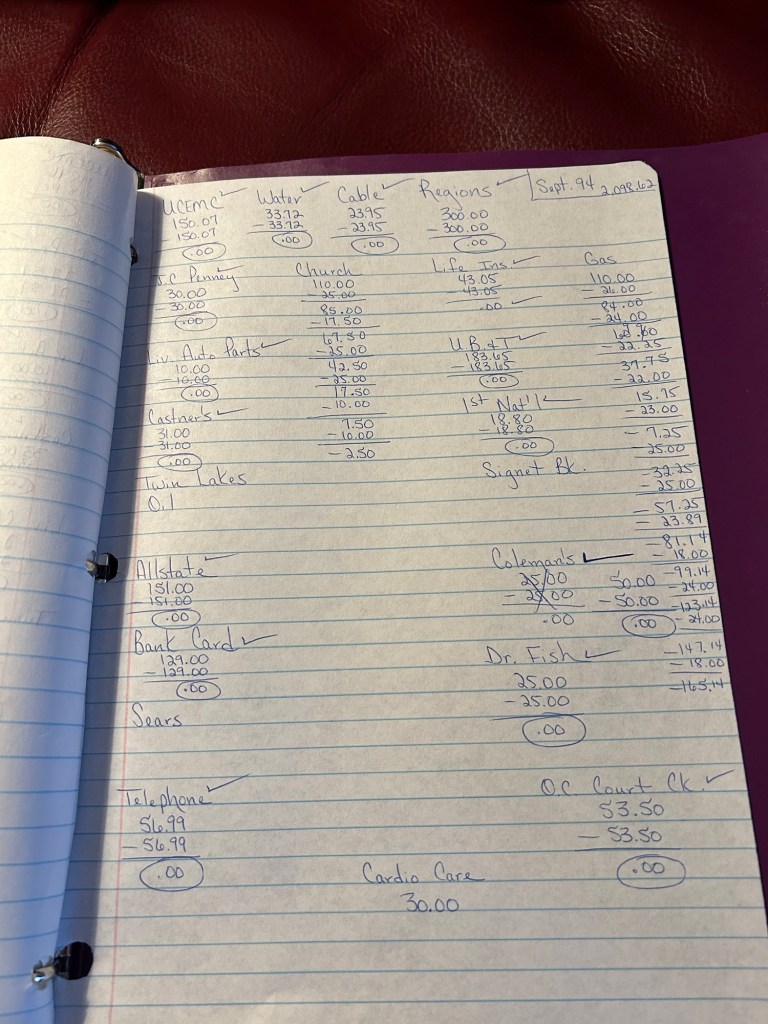 Sept. 94 2,098.62
UCEMC ✓
150.07
150.07
.00
Water ✓
33.72
- 33.72
.00
Cable ✓
23.95
- 23.95
.00
Regions ✓
300.00
- 300.00
.00
J.C Penney ✓
30.00
- 30.00
.00
Church
110.00
- 25.00
85.00
- 17.50
67.50
- 25.00
42.50
- 25.00
17.50
- 10.00
7.50
- 10.00
- 2.50
Life Ins. ✓
43.05
- 43.05
.00
Gas
110.00
- 26.00
84.00
- 24.00
60.00
- 22.25
37.75
- 22.00
15.75
- 23.00
- 7.25
- 25.00
- 32.25
- 25.00
- 57.25
- 23.89
- 81.14
- 18.00
- 99.14
- 24.00
- 123.14
- 24.00
- 147.14
- 18.00
- 165.14
Liv. Auto Parts ✓
10.00
- 10.00
.00
U.B.&T ✓
183.65
- 183.65
.00
Castner's ✓
31.00
31.00
.00
1st Nat'l ✓
18.80
- 18.80
.00
Twin Lakes
Oil
Signet Bk.
Allstate ✓
151.00
- 151.00
.00
Coleman's ✓
25.00
- 25.00
.00
50.00
- 50.00
.00
Bank Card ✓
129.00
- 129.00
.00
Dr. Fish ✓
25.00
- 25.00
.00
Sears
Telephone ✓
56.99
- 56.99
.00
O.C. Court Ck. ✓
53.50
- 53.50
.00
Cardio Care
30.00